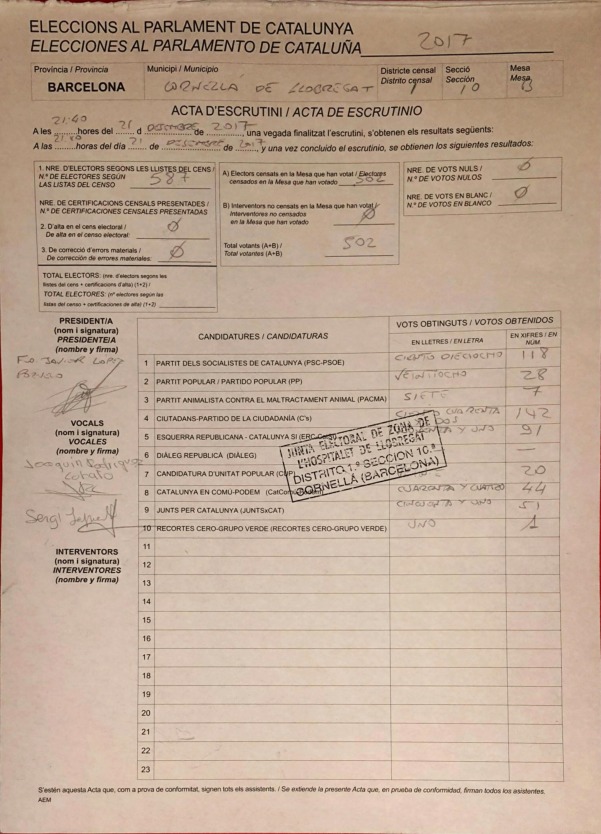 ELECCIONS AL PARLAMENT DE CATALUNYA
ELECCIONES AL PARLAMENTO DE CATALUÑA 2017
Província / Provincia
BARCELONA
Municipi / Municipio
CORNELLA DE LLOBREGAT
Districte censal
Distrito censal 1
Secció
Sección 10
Mesa
Mesa B
ACTA D'ESCRUTINI / ACTA DE ESCRUTINIO
A les 21:40 hores del 21 d DESEMBRE de 2017 una vegada finalitzat l'escrutini, s'obtenen els resultats següents:
A las 21:40 horas del día 21 de DESEMBRE de 2017 y una vez concluido el escrutinio, se obtienen los siguientes resultados:
1. NRE. D'ELECTORS SEGONS LES LLISTES DEL CENS /
N.º DE ELECTORES SEGÚN 587
LAS LISTAS DEL CENSO
NRE. DE CERTIFICACIONS CENSALS PRESENTADES /
N.º DE CERTIFICACIONES CENSALES PRESENTADAS
2. D'alta en el cens electoral / Ø
De alta en el censo electoral:
3. De correcció d'errors materials / Ø
De corrección de errores materiales:
TOTAL ELECTORS: (nre. d'electors segons les
llistes del cens + certificacions d'alta) (1+2) /
TOTAL ELECTORES: (nº electores según las
listas del censo + certificaciones de alta) (1+2)
A) Electors censats en la Mesa que han votat / Electores
censados en la Mesa que han votado 502
B) Interventors no censats en la Mesa que han votat /
Interventores no censados Ø
en la Mesa que han votado
Total votants (A+B) / 502
Total votantes (A+B)
NRE. DE VOTS NULS / Ø
N.º DE VOTOS NULOS
NRE. DE VOTS EN BLANC / Ø
N.º DE VOTOS EN BLANCO
PRESIDENT/A
(nom i signatura)
PRESIDENTE/A
(nombre y firma)
VOCALS
(nom i signatura)
VOCALES
(nombre y firma)
Sergi
INTERVENTORS
(nom i signatura)
INTERVENTORES
(nombre y firma)
CANDIDATURES / CANDIDATURAS
VOTS OBTINGUTS / VOTOS OBTENIDOS
EN LLETRES / EN LETRA
EN XIFRES / EN NÚM.
1 PARTIT DELS SOCIALISTES DE CATALUNYA (PSC-PSOE) CIENTO DIECIOCHO 118
2 PARTIT POPULAR / PARTIDO POPULAR (PP) VEINTIOCHO 28
3 PARTIT ANIMALISTA CONTRA EL MALTRACTAMENT ANIMAL (PACMA) SIETE 7
4 CIUTADANS-PARTIDO DE LA CIUDADANÍA (C's) CUARENTA DOS 142
5 ESQUERRA REPUBLICANA - CATALUNYA SÍ Y UNO 91
6 DIÀLEG REPUBLICÀ (DIÀLEG) —
7 CANDIDATURA D'UNITAT POPULAR (CUP) 20
8 CATALUNYA EN COMÚ-PODEM CUARENTA Y CUATRO 44
9 JUNTS PER CATALUNYA (JUNTSxCAT) CINCUENTA Y UNO 51
10 RECORTES CERO-GRUPO VERDE (RECORTES CERO-GRUPO VERDE) UNO 1
JUNTA ELECTORAL DE ZONA DE
L'HOSPITALET DE LLOBREGAT
DISTRITO 1.º SECCION 10.ª
CORNELLÀ (BARCELONA)
11
12
13
14
15
16
17
18
19
20
21
22
23
S'estén aquesta Acta que, com a prova de conformitat, signen tots els assistents. / Se extiende la presente Acta que, en prueba de conformidad, firman todos los asistentes.
AEM